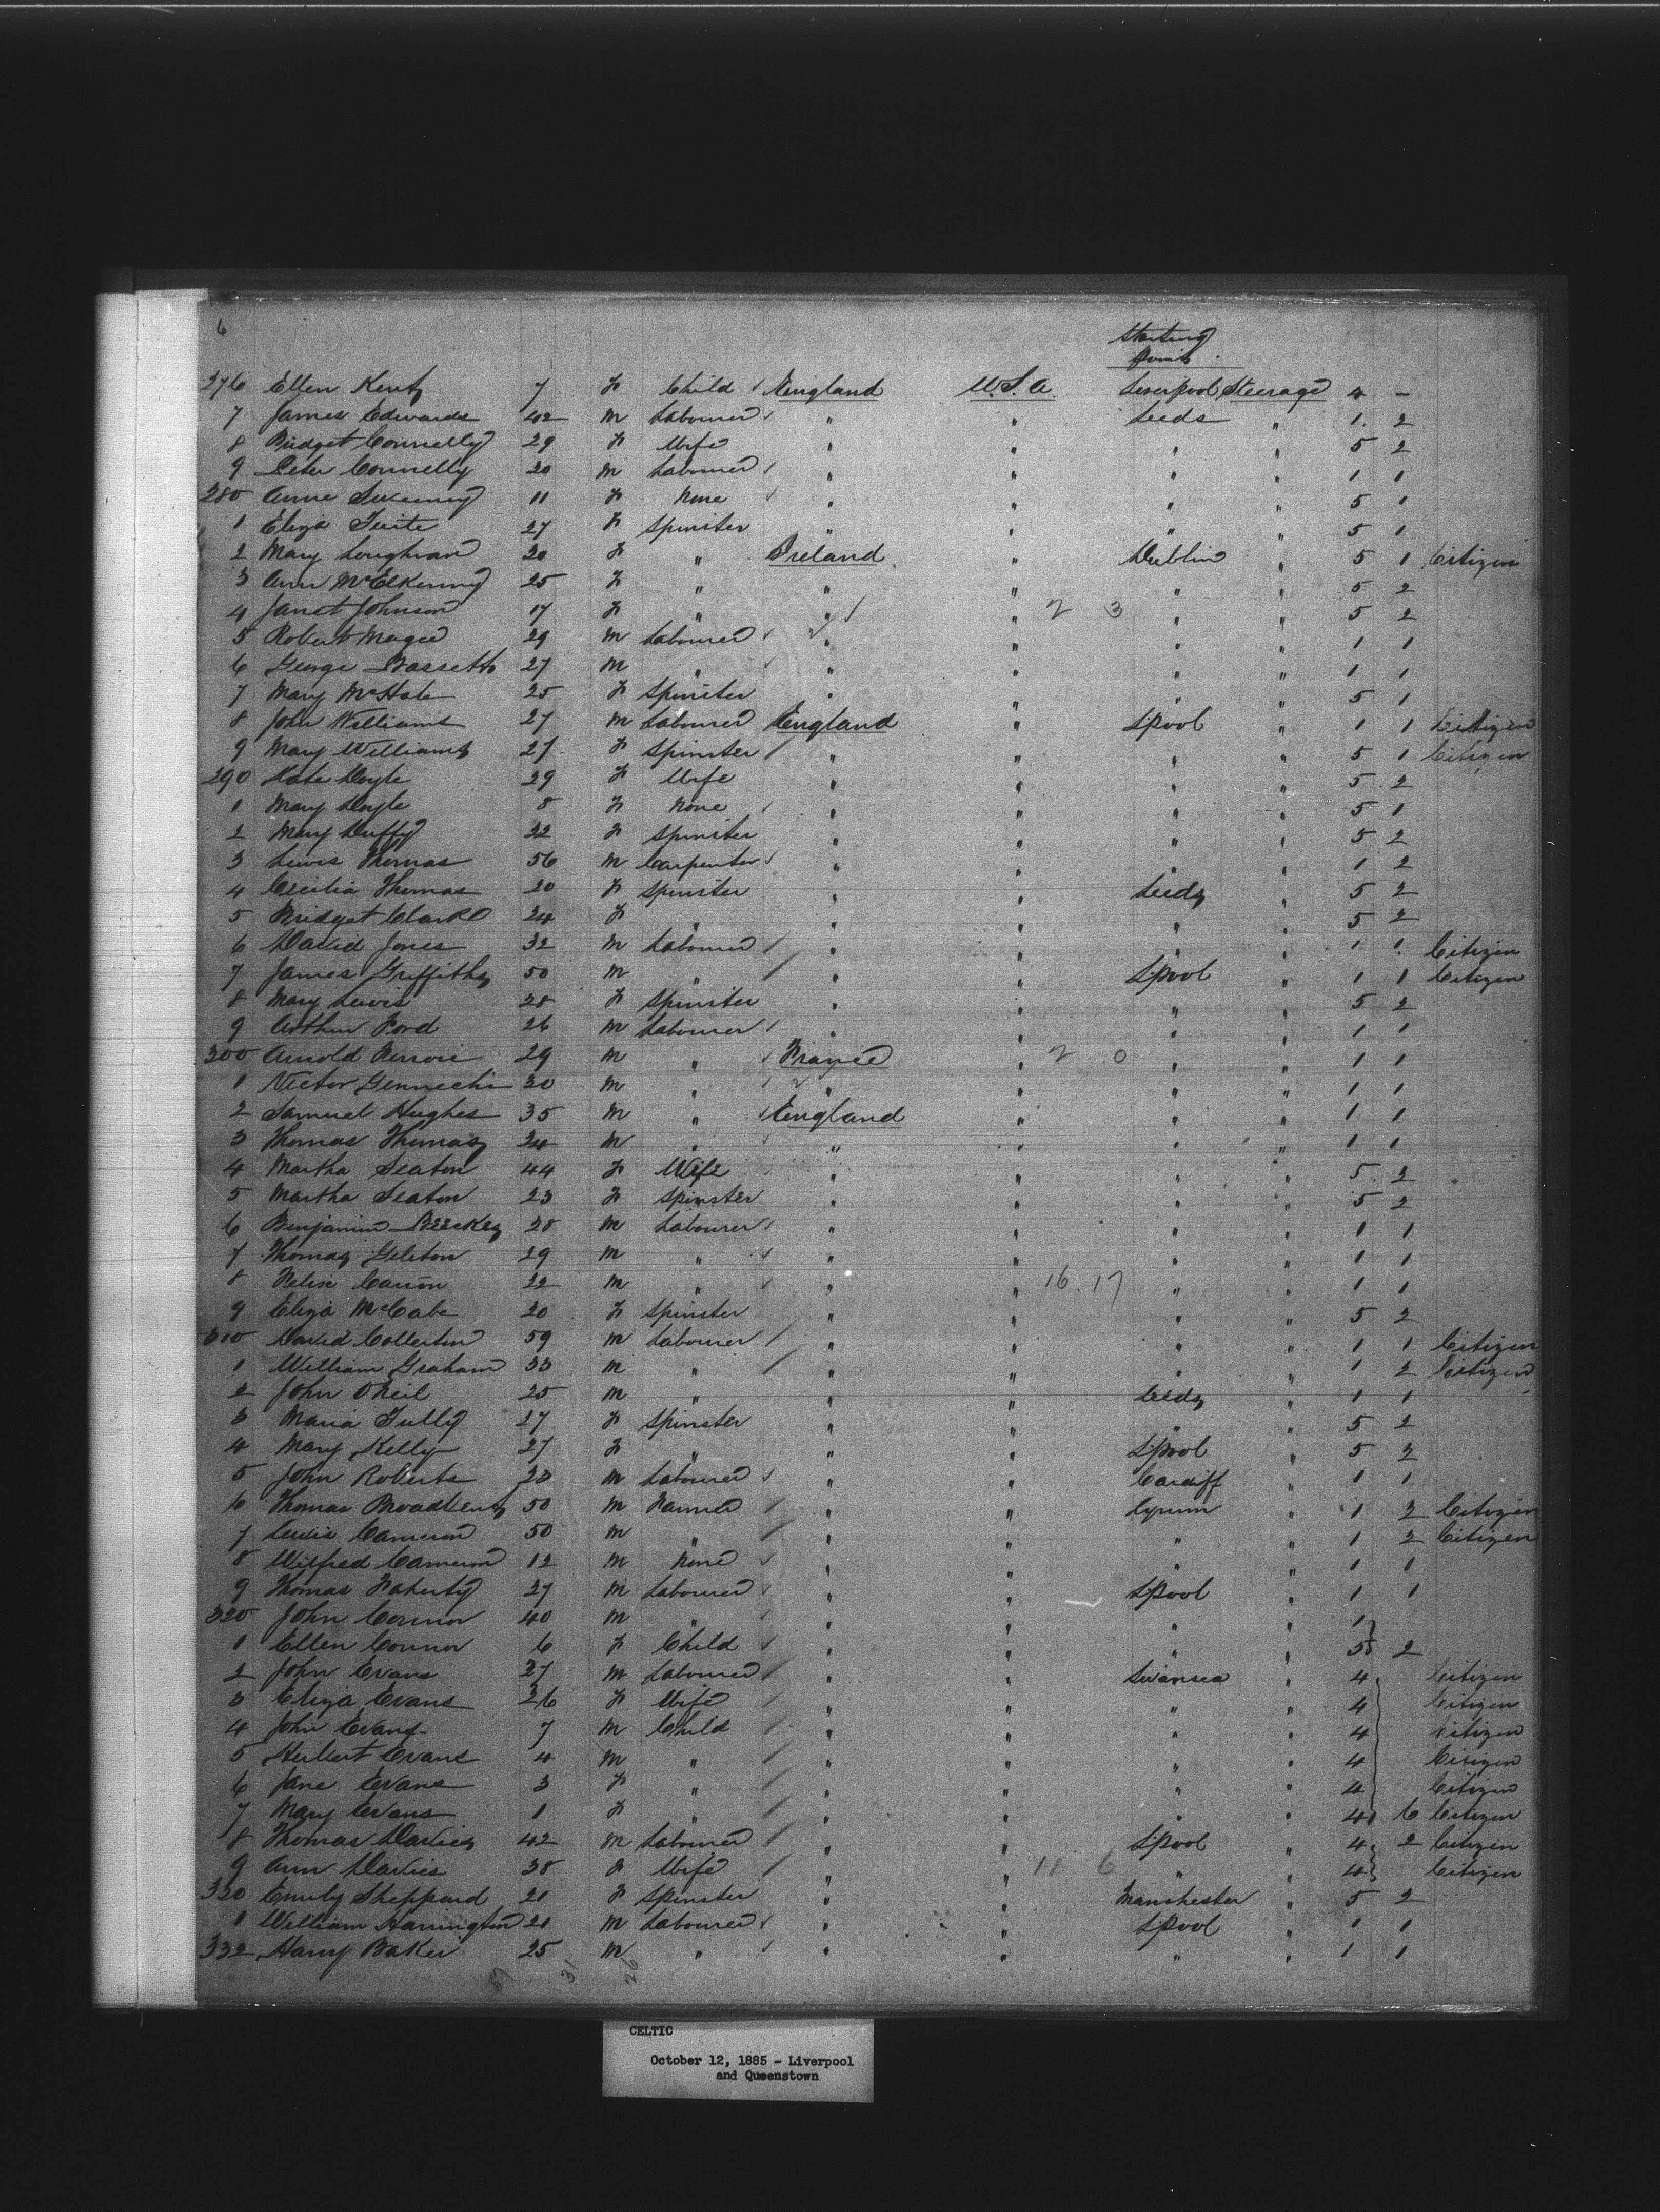 6
Starting
Point
276 Ellen Kent 7 F Child England U.S.A. Liverpool Steerage 4 -
7 James Edwards 42 M Labourer " " Leeds " 1 2
8 Bridget Connelly 29 F Wife " " " " 5 2
9 Peter Connelly 20 M Labourer " " " " 1 1
280 Anne Sweeney 11 F None " " " " 5 1
1 Eliza Tuite 27 F Spinster " " " " 5 1
2 Mary Loughran 20 F " Ireland " Dublin " 5 1 Citizen
3 Ann McElkenny 25 F " " " " " 5 2
4 Janet Johnson 17 F " " " 2 3 " " 5 2
5 Robert Magee 29 M Labourer " " " " 1 1
6 George Bassett 27 M " " " " " 1 1
7 Mary McHale 25 F Spinster " " " " 5 1
8 John Williams 27 M Labourer England " Lpool " 1 1 Citizen
9 Mary Williams 27 F Spinster " " " " 5 1 Citizen
290 Kate Doyle 29 F Wife " " " " 5 2
1 Mary Doyle 8 F None " " " " 5 1
2 Mary Duffy 22 F Spinster " " " " 5 2
3 Lewis Thomas 56 M Carpenter " " " " 1 2
4 Cecilia Thomas 20 F Spinster " " Leeds " 5 2
5 Bridget Clark 24 F " " " " " 5 2
6 David Jones 32 M Labourer " " " " 1 1 Citizen
7 James Griffiths 50 M " " " Lpool " 1 1 Citizen
8 Mary Lewis 28 F Spinster " " " " 5 2
9 Arthur Ford 26 M Labourer " " " " 1 1
300 Arnold 29 M " France " 2 0 " " 1 1
1 Victor 30 M " " " " " 1 1
2 Samuel Hughes 35 M " England " " " 1 1
3 Thomas Thomas 24 M " " " " " 1 1
4 Martha Seaton 44 F Wife " " " " 5 2
5 Martha Seaton 23 F Spinster " " " " 5 2
6 Benjamin 28 M Labourer " " " " 1 1
7 Thomas Gleton 29 M " " " " " 1 1
8 Felix 22 M " " " 16 17 " " 1 1
9 Eliza McCabe 20 F Spinster " " " " 5 2
310 David Collerton 59 M Labourer " " " " 1 1 Citizen
1 William Graham 33 M " " " " " 1 2 Citizen
2 John O'Neil 25 M " " " Leeds " 1 1
3 Maria Tully 27 F Spinster " " " " 5 2
4 Mary Kelly 27 F " " " Lpool " 5 2
5 John Roberts 23 M Labourer " " Cardiff " 1 1
6 Thomas Broadbent 50 M Farmer " " " 1 2 Citizen
7 Cameron 50 M " " " " " 1 2 Citizen
8 Wilfred Cameron 12 M None " " " " 1 1
9 Thomas Faherty 27 M Labourer " " Lpool " 1 1
320 John Connor 40 M " " " " " 1
1 Ellen Connor 6 F Child " " " " 5 2
2 John Evans 27 M Labourer " " Swansea " 4 Citizen
3 Eliza Evans 26 F Wife " " " " 4 Citizen
4 John Evans 7 M Child " " " " 4 Citizen
5 Herbert Evans 4 M " " " " " 4 Citizen
6 Jane Evans 3 F " " " " " 4 Citizen
7 Mary Evans 1 F " " " " " 4 6 Citizen
8 Thomas Davies 42 M Labourer " " Lpool " 4 2 Citizen
9 Ann Davies 38 F Wife " " 11 6 " " 4 Citizen
330 Emily Sheppard 21 F Spinster " " Manchester " 5 2
1 William Harrington 21 M Labourer " " Lpool " 1 1
332 Harry Baker 25 M " " " " " 1 1
31 26
CELTIC
October 12, 1885 - Liverpool
and Queenstown